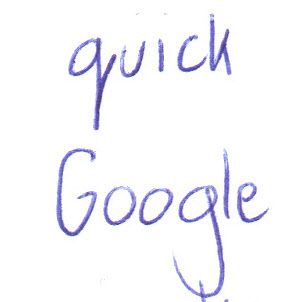 quick
Google